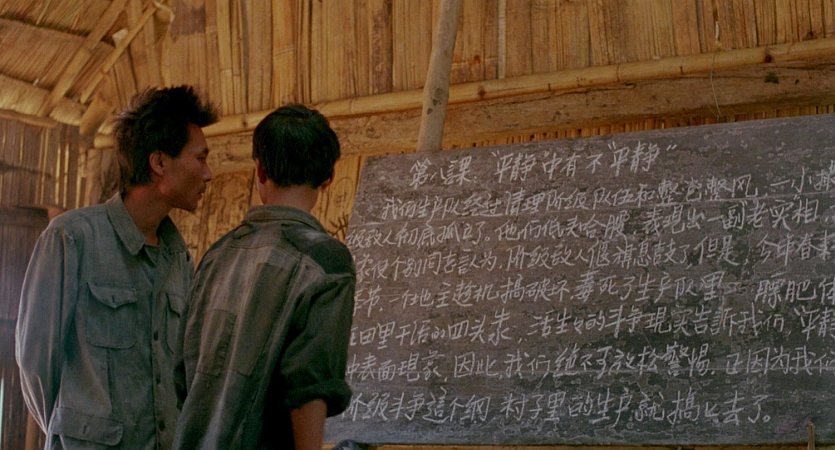 第八課 "平静"中有不"平静"
我们生产队经过清理阶级队伍和整党整风,一小
级敌人彻底孤立了。他们低头合腰,表現出一副老实相。
个别同志認为,阶级敌人偃旗息鼓了。但是,今年春
节,一地主趁机搞破坏,毒死了生产队里一 膘肥
在田里干活的四头,活生生的斗争現实告訴我们,"平静
种表面現象。因此,我们绝不可放松警惕。正因为我们
阶级斗争這个纲,村子里的生产就搞上去了。